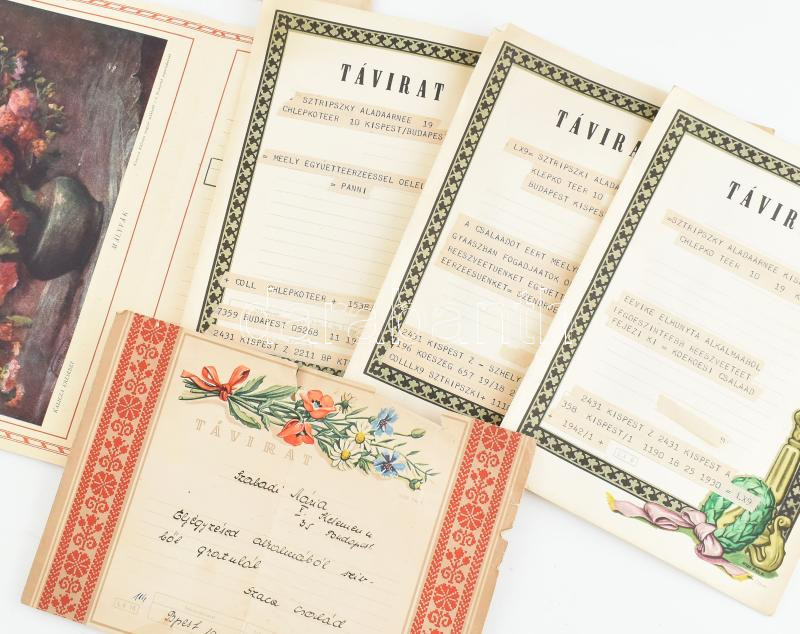 TÁVIRAT
SZTRIPSZKY ALADAARNEE 19
CHLEPKOTEER 10 KISPEST/BUDAPES
= MEELY EGYUETTEERZEESSEL OELEL
= PANNI
+ COLL CHLEPKOTEER + 1538/
7359 BUDAPEST D5268 11 19
2431 KISPEST Z 2211 BP KT
TÁVIRA
LX9= SZTRIPSZKI ALADA
KLEPKO TEER 10
BUDAPEST KISPES
A CSALAADOT EERT MEELY
GYAASZBAN FOGADJAATOK O
REESZVEETUENKET EGYUETT
EERZEESUENKET= SZENDREJ
2431 KISPEST Z - SZHELY
196 KOESZEG 657 19/18 2
COLLLX9 SZTRIPSZKI+ 111
TÁVIR
=SZTRIPSZKY ALADAARNEE KIS
CHLEPKO TEER 10 19 K
EEVIKE ELHUNYTA ALKALMAABOL
LEGOESZINTEEBB REESZVEETEET
FEJEZI KI = KOEROESI CSALAAD
2431 KISPEST Z 2431 KISPEST A
358 KISPEST/1 1190 18 25 1930 = LX9
1942/1 +
TÁVIRAT
Szabadi Mária
Budapest
Eljegyzésed alkalmából szív-
ből gratulál
Szacs család
Bpest
darabanth